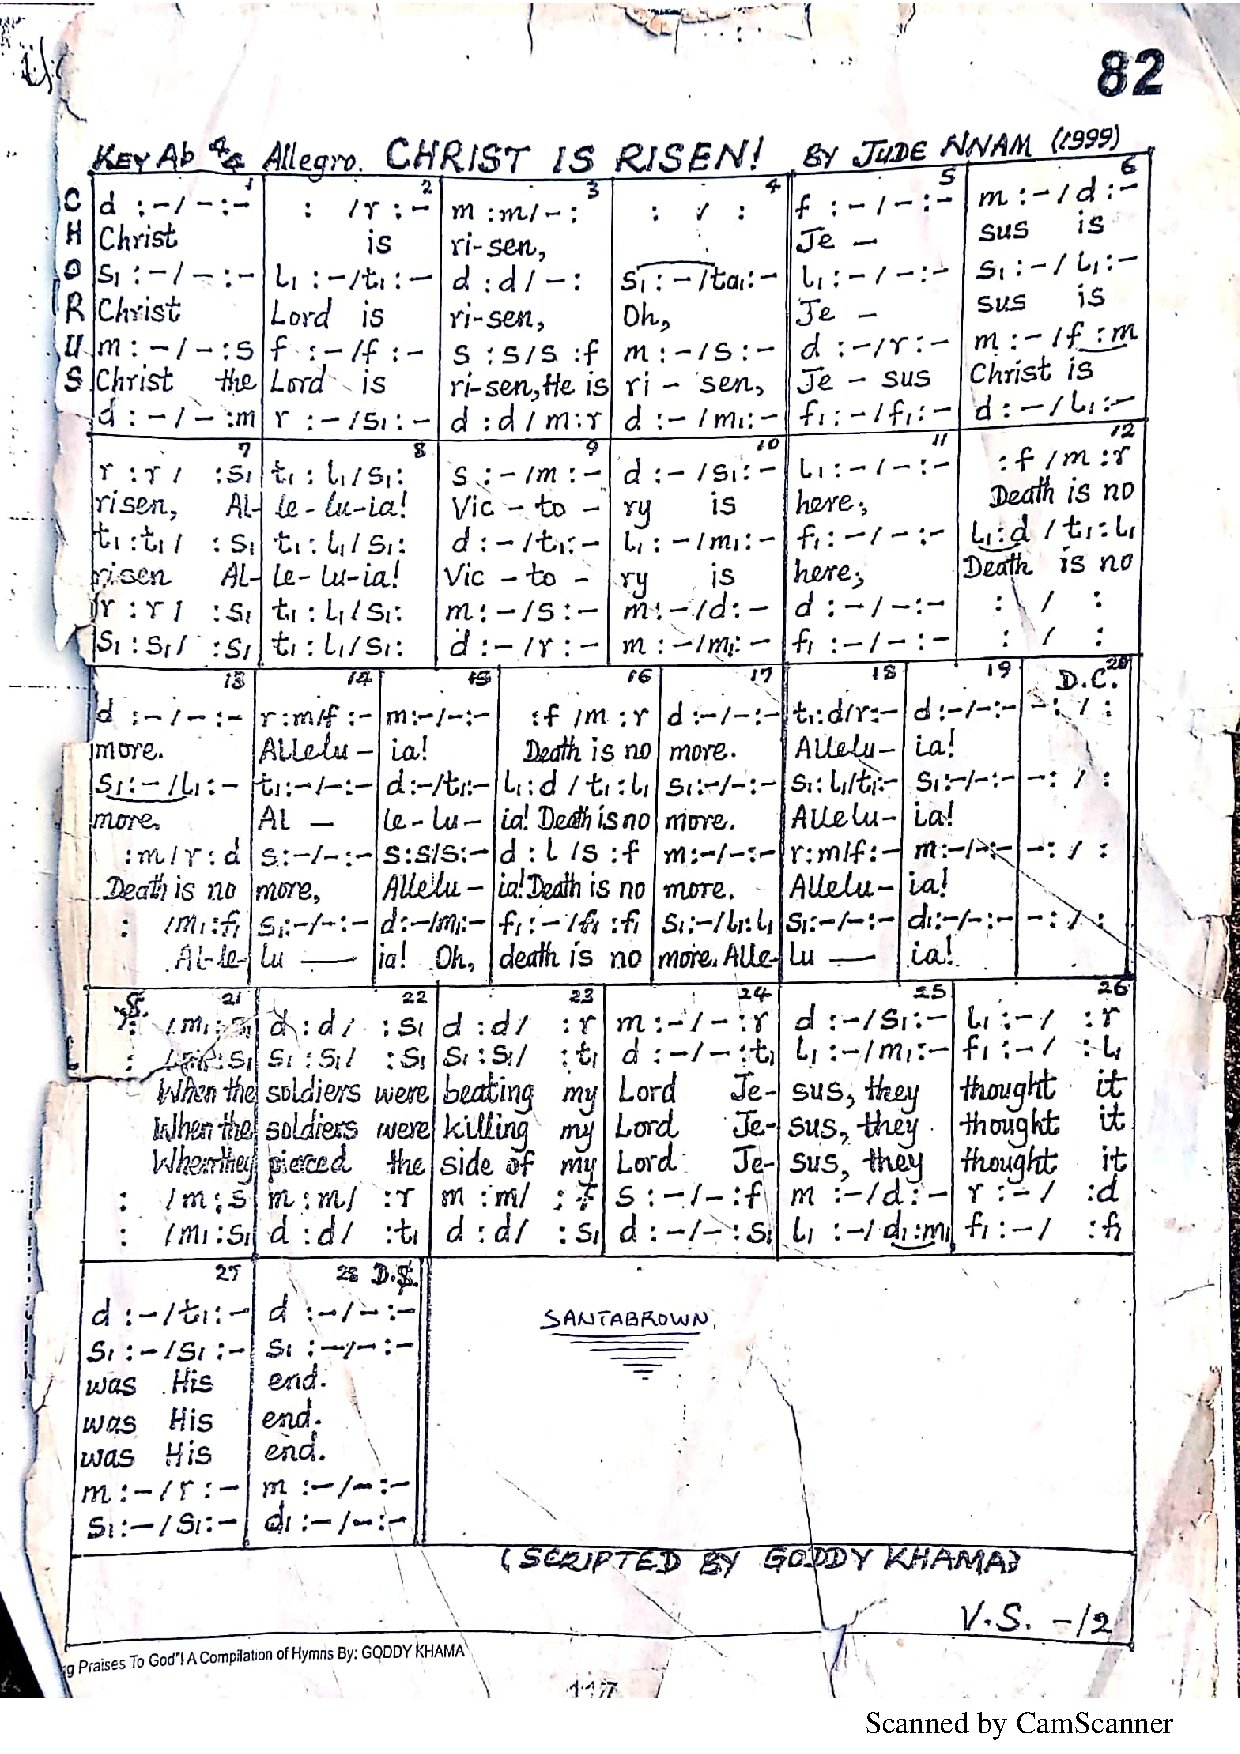 82
KEY Ab 4/4 Allegro. CHRIST IS RISEN! BY JUDE NNAM (1999)
CHORUS
1 2 3 4 5 6
d :-/-:- | : /r :- | m :m/-: | : / : | f :-/-:- | m :-/d :-
Christ is ri-sen, Je - sus is
s₁ :-/-:- | l₁ :-/t₁ :- | d :d/-: | s₁ :-/ta₁ :- | l₁ :-/-:- | s₁ :-/l₁ :-
Christ Lord is ri-sen, Oh, Je - sus is
m :-/-:s | f :-/f :- | s :s/s :f | m :-/s :- | d :-/r :- | m :-/f :m
Christ the Lord is ri-sen, He is ri - sen, Je - sus Christ is
d :-/-:m | r :-/s₁ :- | d :d/m :r | d :-/m₁ :- | f₁ :-/f₁ :- | d :-/l₁ :-
7 8 9 10 11 12
r :r/ :s₁ | t₁ :l₁/s₁ : | s :-/m :- | d :-/s₁ :- | l₁ :-/-:- | :f/m :r
risen, Al- le-lu-ia! Vic - to - ry is here, Death is no
t₁ :t₁/ :s₁ | t₁ :l₁/s₁ : | d :-/t₁ :- | l₁ :-/m₁ :- | f₁ :-/-:- | l₁ :d/t₁ :l₁
risen Al- le-lu-ia! Vic - to - ry is here, Death is no
r :r/ :s₁ | t₁ :l₁/s₁ : | m :-/s :- | m :-/d :- | d :-/-:- | : / :
s₁ :s₁/ :s₁ | t₁ :l₁/s₁ : | d :-/r :- | m :-/m₁ :- | f₁ :-/-:- | : / :
13 14 15 16 17 18 19 D.C. 20
d :-/-:- | r :m/f :- | m :-/-:- | :f/m :r | d :-/-:- | t₁ :d/r :- | d :-/-:- | -: / :
more. Allelu - ia! Death is no more. Allelu - ia!
s₁ :-/l₁ :- | t₁ :-/-:- | d :-/t₁ :- | l₁ :d/t₁ :l₁ | s₁ :-/-:- | s₁ :l₁/t₁ :- | s₁ :-/-:- | -: / :
more. Al - le-lu- ia! Death is no more. Allelu- ia!
:m/r :d | s :-/-:- | s :s/s :- | d :l/s :f | m :-/-:- | r :m/f :- | m :-/-:- | -: / :
Death is no more, Allelu - ia! Death is no more. Allelu - ia!
: /m₁ :f₁ | s₁ :-/-:- | d :-/m₁ :- | f₁ :-/f₁ :f₁ | s₁ :-/l₁ :l₁ | s₁ :-/-:- | d₁ :-/-:- | -: / :
Al-le- lu — ia! Oh, death is no more. Alle- lu — ia!
21 22 23 24 25 26
: /m₁ :s₁ | d :d/ :s₁ | d :d/ :r | m :-/-:r | d :-/s₁ :- | l₁ :-/ :r
: / :s₁ | s₁ :s₁/ :s₁ | s₁ :s₁/ :t₁ | d :-/-:t₁ | l₁ :-/m₁ :- | f₁ :-/ :l₁
When the soldiers were beating my Lord Je- sus, they thought it
When the soldiers were killing my Lord Je- sus, they thought it
When they pierced the side of my Lord Je- sus, they thought it
: /m :s | m :m/ :r | m :m/ :f | s :-/-:f | m :-/d :- | r :-/ :d
: /m₁ :s₁ | d :d/ :t₁ | d :d/ :s₁ | d :-/-:s₁ | l₁ :-/d₁ :m₁ | f₁ :-/ :f₁
27 28 D.S.
d :-/t₁ :- | d :-/-:-
s₁ :-/s₁ :- | s₁ :-/-:-
was His end.
was His end.
was His end.
m :-/r :- | m :-/-:-
s₁ :-/s₁ :- | d₁ :-/-:-
SANTABROWN
(SCRIPTED BY GODDY KHAMA)
V.S. -/2
g Praises To God"! A Compilation of Hymns By: GODDY KHAMA
117
Scanned by CamScanner